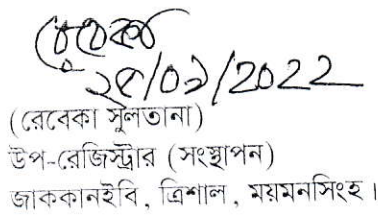 রেবেকা
২৫/০১/2022
(রেবেকা সুলতানা)
উপ-রেজিস্ট্রার (সংস্থাপন)
জাককানইবি, ত্রিশাল, ময়মনসিংহ।